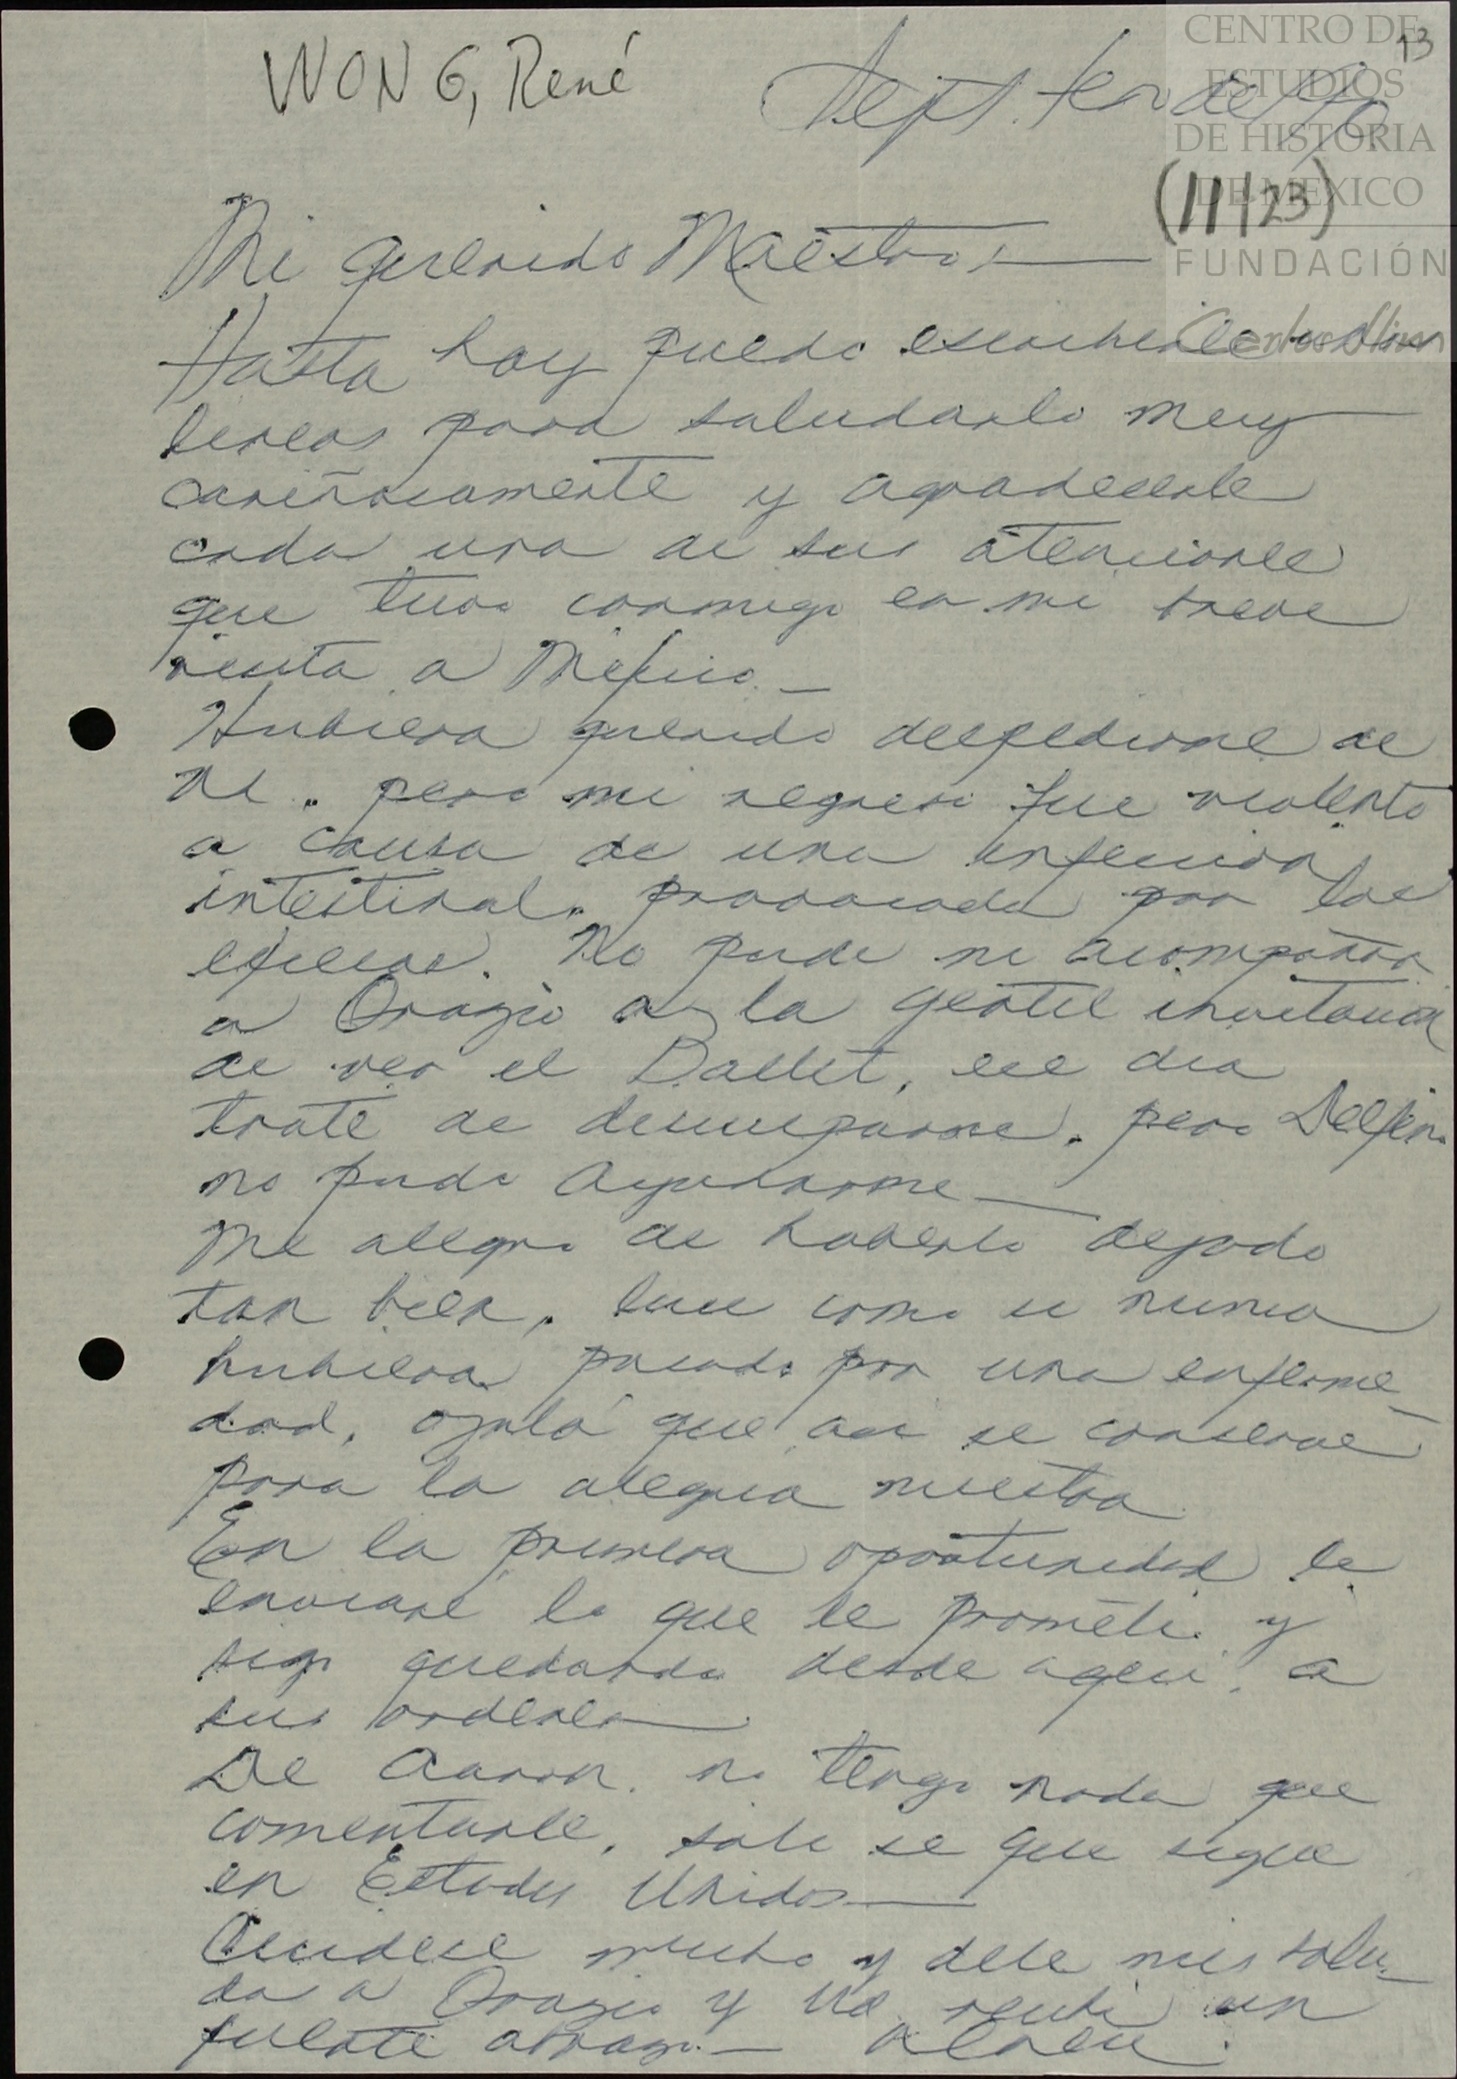 WONG, René
13
CENTRO DE
ESTUDIOS
DE HISTORIA
DE MÉXICO
FUNDACIÓN
Carlos Slim
Sept. 1ero de
(11/23)
Mi querido Maestro:
Hasta hoy puedo escribirle unas
lineas para saludarlo muy
cariñosamente y agradecerle
cada una de sus atenciones
que tuvo conmigo en mi breve
visita a México.
Hubiera querido despedirme de
Ud. pero mi regreso fue violento
a causa de una infeccion
intestinal, provocada por los
No pude ni acompañar
a Orazio a la gentil invitacion
de ver el Ballet, ese dia
trate de desocuparme, pero Delfino
no pudo ayudarme
Me alegro de haberlo dejado
tan bien, luce como si nunca
hubiera pasado por una enferme_
dad, ojalá que asi se conserve
para la alegria nuestra
En la primera oportunidad le
enviaré lo que le prometi y
sigo quedando desde aqui a
sus ordenes
De Aaron no tengo nada que
comentarle, solo se que sigue
en Estados Unidos
Cuidese mucho y dele mis salu_
dos a Orazio y Ud. reciba un
fuerte abrazo.